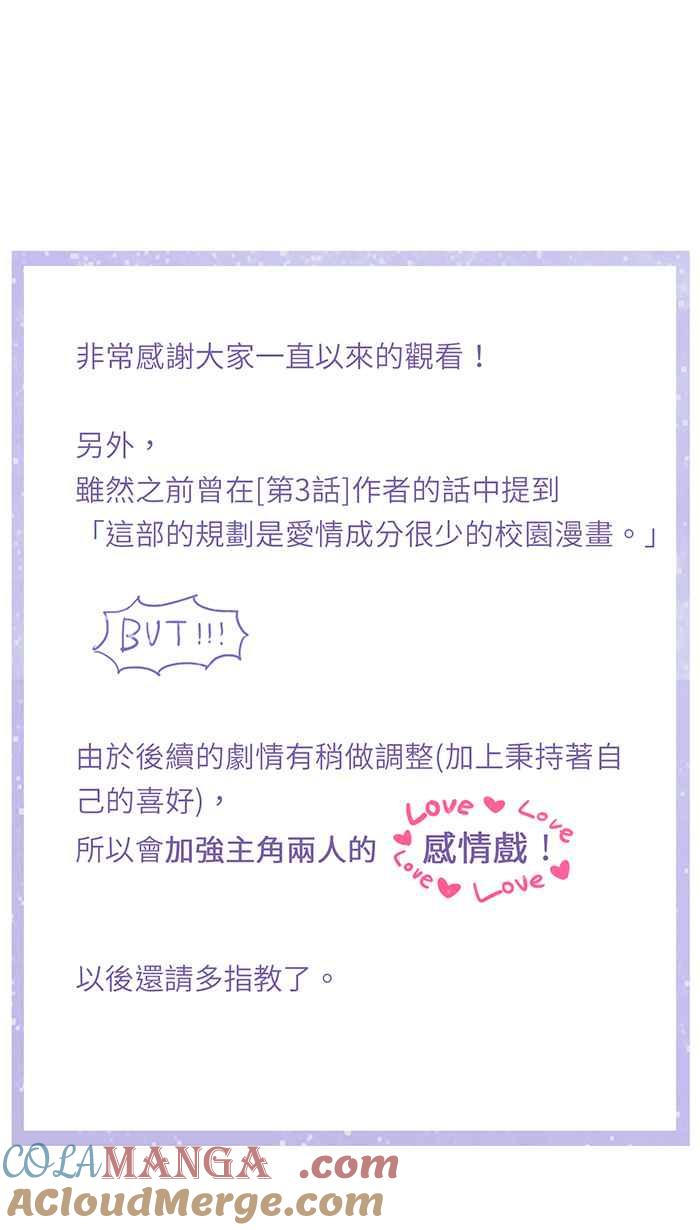 非常感謝大家一直以來的觀看！
另外，
雖然之前曾在[第3話]作者的話中提到
「這部的規劃是愛情成分很少的校園漫畫。」
BUT!!!
由於後續的劇情有稍做調整(加上秉持著自
己的喜好)，
所以會加強主角兩人的 感情戲！
Love Love
Love Love
以後還請多指教了。
COLAMANGA.com
ACloudMerge.com